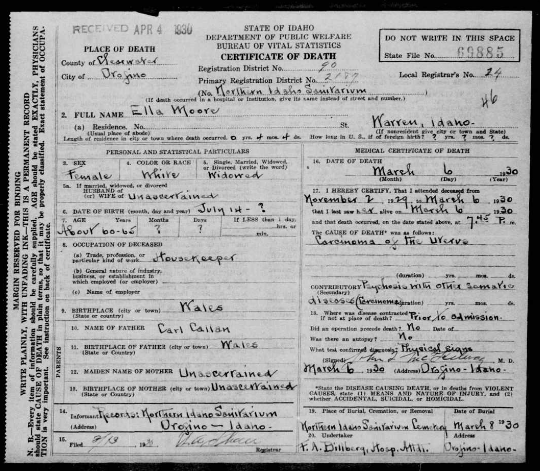 RECEIVED APR 4 1930
STATE OF IDAHO
DEPARTMENT OF PUBLIC WELFARE
BUREAU OF VITAL STATISTICS
CERTIFICATE OF DEATH
DO NOT WRITE IN THIS SPACE
State File No. 69885
PLACE OF DEATH
County of Clearwater
City of Orofino
Registration District No. 90
Primary Registration District No.
Local Registrar's No. 24
(No. Northern Idaho Sanitarium
(If death occurred in a hospital or institution, give its name instead of street and number.)
46
2. FULL NAME Ella Moore
(a) Residence. No. St. Warren, Idaho.
(Usual place of abode) (If nonresident give city or town and State)
Length of residence in city or town where death occurred 0 yrs. 4 mos. 4 ds. How long in U. S., if of foreign birth? ? yrs. mos. ? ds.
PERSONAL AND STATISTICAL PARTICULARS
3. SEX Female
4. COLOR OR RACE White
5. Single, Married, Widowed, or Divorced (write the word) Widowed
5a. If married, widowed, or divorced
HUSBAND of
(or) WIFE of Unascertained
6. DATE OF BIRTH (month, day and year) July 14-?
7. AGE Years About 60-65 Months ? Days ? If LESS than 1 day,
8. OCCUPATION OF DECEASED
(a) Trade, profession, or particular kind of work Housekeeper
(b) General nature of industry, business, or establishment in which employed (or employer)
(c) Name of employer
9. BIRTHPLACE (city or town) Wales
(State or country)
10. NAME OF FATHER Carl Callan
11. BIRTHPLACE OF FATHER (city or town) Wales
(State or Country)
12. MAIDEN NAME OF MOTHER Unascertained
13. BIRTHPLACE OF MOTHER (city or town) Unascertained
(State or Country)
PARENTS
14. Informant Records: Northern Idaho Sanitarium
(Address) Orofino - Idaho.
15. Filed 3/13 1930
Registrar
MEDICAL CERTIFICATE OF DEATH
16. DATE OF DEATH March 6 1930
(Month) (Day) (Year)
17. I HEREBY CERTIFY, That I attended deceased from
November 2 1929, to March 6 1930
that I last saw her alive on March 6 1930
and that death occurred, on the date stated above, at 7:45 P. m.
The CAUSE OF DEATH* was as follows:
Carcinoma of the Uterus
(duration) yrs. mos. ds.
CONTRIBUTORY Psychosis with other somatic
diseases (Carcinoma) (duration) yrs. mos. ds.
18. Where was disease contracted
if not at place of death? Prior to admission.
Did an operation precede death? No Date of
Was there an autopsy? No
What test confirmed diagnosis? Physical signs
(Signed) M. D.
March 6, 1930 (Address) Orofino-Idaho.
*State the DISEASE CAUSING DEATH, or in deaths from VIOLENT CAUSES, state (1) MEANS AND NATURE OF INJURY, and (2) whether ACCIDENTAL, SUICIDAL or HOMICIDAL.
19. Place of Burial, Cremation, or Removal Date of Burial
Northern Idaho Sanitarium Cemetery March 8 1930
20. Undertaker Address
F. A. Dillberg, Hosp. Attd. Orofino-Idaho.
MARGIN RESERVED FOR BINDING
WRITE PLAINLY, WITH UNFADING INK—THIS IS A PERMANENT RECORD
N. B.—Every item of information should be carefully supplied. AGE should be stated EXACTLY. PHYSICIANS should state CAUSE OF DEATH in plain terms, so that it may be properly classified. Exact statement of OCCUPATION is very important. See instruction on back of certificate.